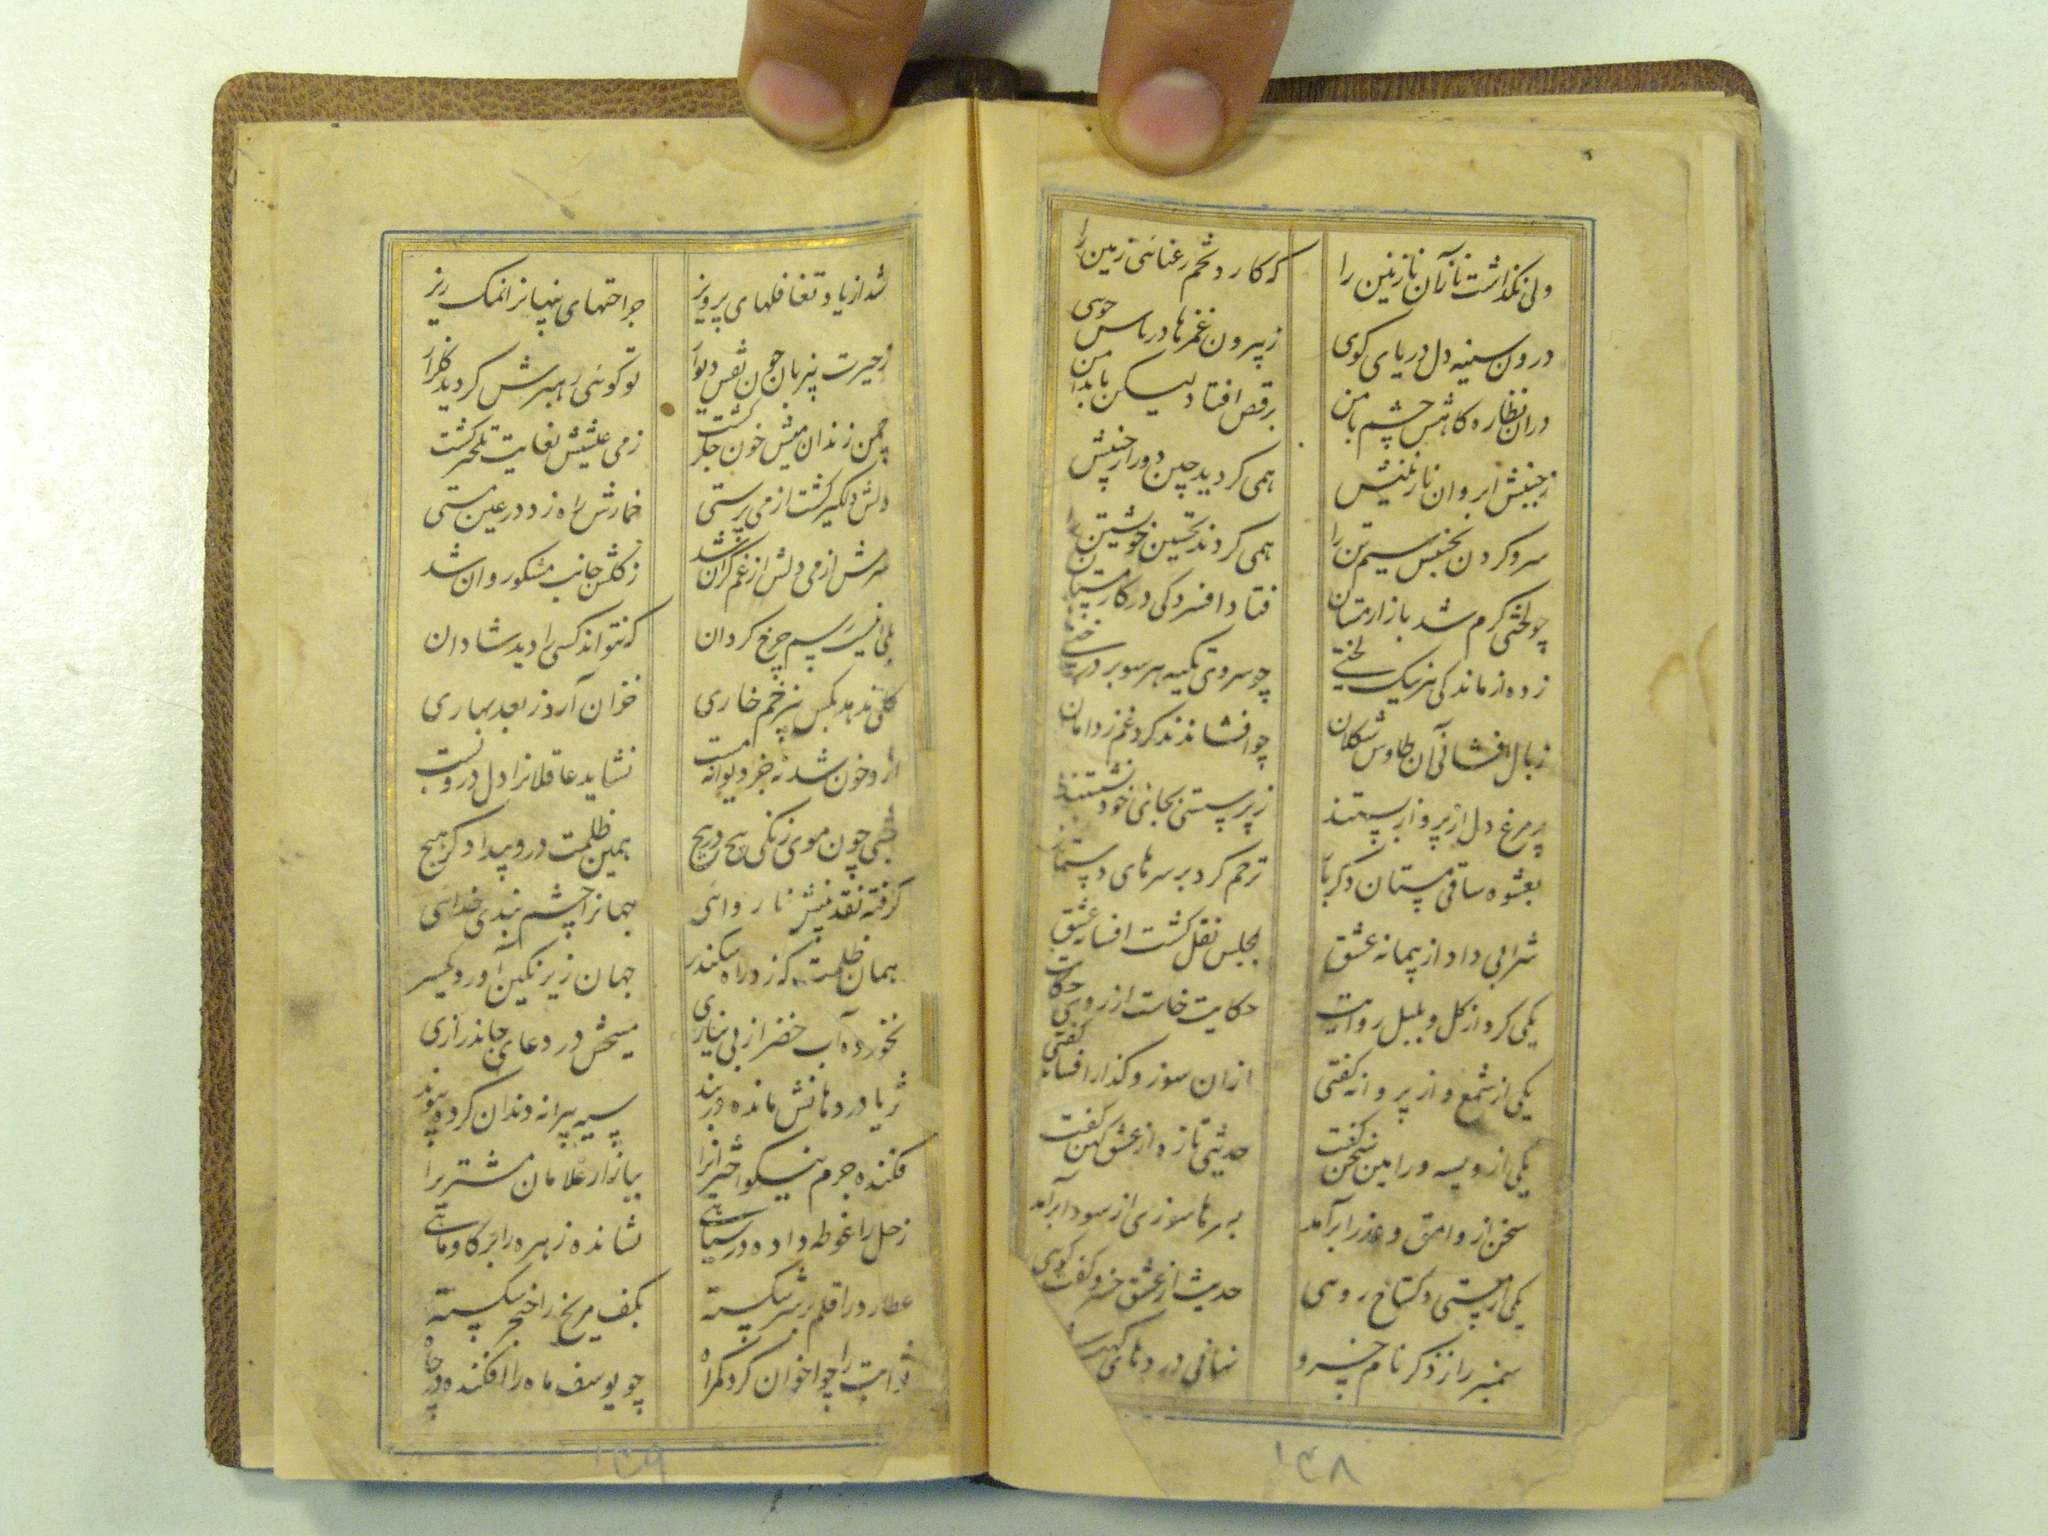 ولی نگذاشت ناز آن نازنین را که کارد تخم رعنائی زمین را
درون سینه دل دریای کوی زبیرون غمزها در باس جوی
دران نظاره کاهش چشم بامن برقص افتاد لیکن با بدامن
زجنبش ابروان نازنینش همی کردید چین دور از جبینش
سرو کردن بجنبش سیم تن را همی کردند تحسین خویشتن را
چو لختی کرم شد بازار مستان فتاد افسردکی در کار مستان
زده از ماندکی هر یک لختی چو سروی تکیه هر سو بر درختی
زبال افشانی آن طاوس شکلان چو افشاندند کرد غم ز دامان
پر مرغ دل از پرواز بستند زپر بستن بجای خود نشستند
بعشوه ساقی مستان دکر بار ترحم کرد بر سرهای دستار
شرابی داد از پیمانه عشق بمجلس نقل کشت افسانه عشق
یکی کرد از کل و بلبل روایت حکایت خاست از روی حکایت
یکی از شمع و از پروانه کفتی ازان سوز و کداز افسانه کفتی
یکی از ویسه و رامین سخن کفت حدیثی تازه از عشق کهن کفت
سخن از وامق و عذرا برآمد بهر جا سوزی از سودا برآمد
یکی از چستی و کستاخ روئی حدیث از عشق خسرو کفت کوئی
سمنبر را ز ذکر نام خسرو نهانی دردهای
شد از یاد تغافلهای پرویز جراحتهای پنهانرا نمک ریز
زحیرت بیزبان چون نقش دیوار تو کوئی رهبرش کردید کلزار
چمن زندان میش خون جکر کشت زمی عیشش بغایت تلختر کشت
دلش دلکیر کشت از می پرستی خمارش راه زد در عین مستی
سرش از می دلش از غم کران شد زکلشن جانب مشکو روان شد
بلی اینست رسم چرخ کردان که نتواند کسی را دید شادان
کلی ندهد بکس بی زخم خاری خزان آرد ز بعد بهاری
ازو خون شد نه جز دیوانه مست نشاید عاقلانرا دل درو بست
شبی چون موی زنکی پیچ در پیچ همین ظلمت درو پیدا دکر هیچ
کرفته نقد بینش ناروائی جهانرا چشم بندی خدائی
همان ظلمت که زد راه سکندر جهان زیر نکین آورد یکسر
نخورده آب خضر از بی نیازی مسیحش در دعای جاندرازی
ثریا در دهانش مانده در بند سیه پیرانه دندان کرده پیوند
فکنده جرم نیکو اختریرا ببازار غلامان مشتریرا
زحل را غوطه داده در سیاهی نشانده زهره را بر کاو و ماهی
عطارد را قلم بر سر شکسته بکف مریخ را خنجر شکسته
ثوابت را چو اخوان کرد کمراه چو یوسف ماه را افکنده در چاه
۱۴۹
۱۴۸